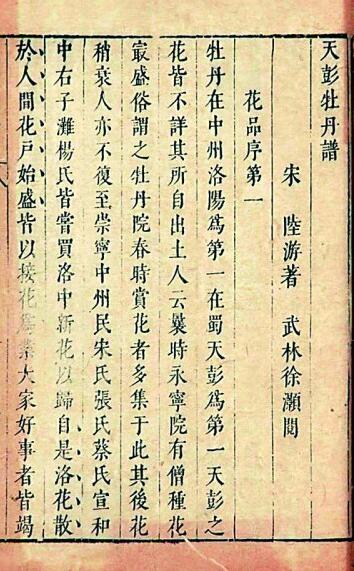 天彭牡丹譜
宋　陸游著　武林徐灝閱
花品序第一
牡丹在中州洛陽爲第一在蜀天彭爲第一天彭之
花皆不詳其所自出土人云曩時永寧院有僧種花
㝡盛俗謂之牡丹院春時賞花者多集于此其後花
稍衰人亦不復至崇寧中州民宋氏張氏蔡氏宣和
中石子灘楊氏皆嘗買洛中新花以歸自是洛花散
於人間花戶始盛皆以接花爲業大家好事者皆竭